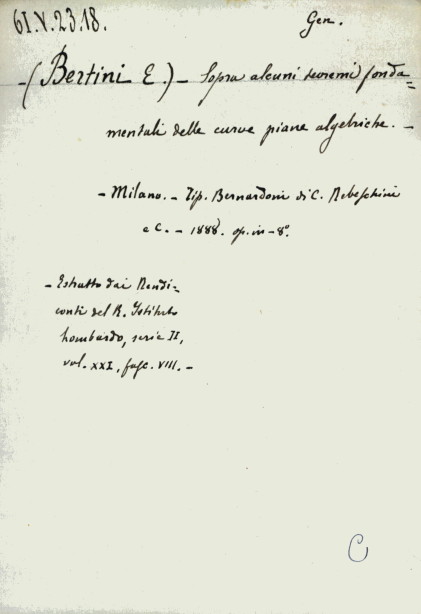 61.V.23.18.
Gen.
-(Bertini E.)- Sopra alcuni teoremi fonda=
mentali delle curve piane algebriche. -
- Milano. - Tip. Bernardoni di C. Rebeschini
e C. - 1888. op. in-8°.
- Estratto dai Rendi=
conti del R. Istituto
Lombardo, serie II,
vol. XXI, fasc. VIII. -
C